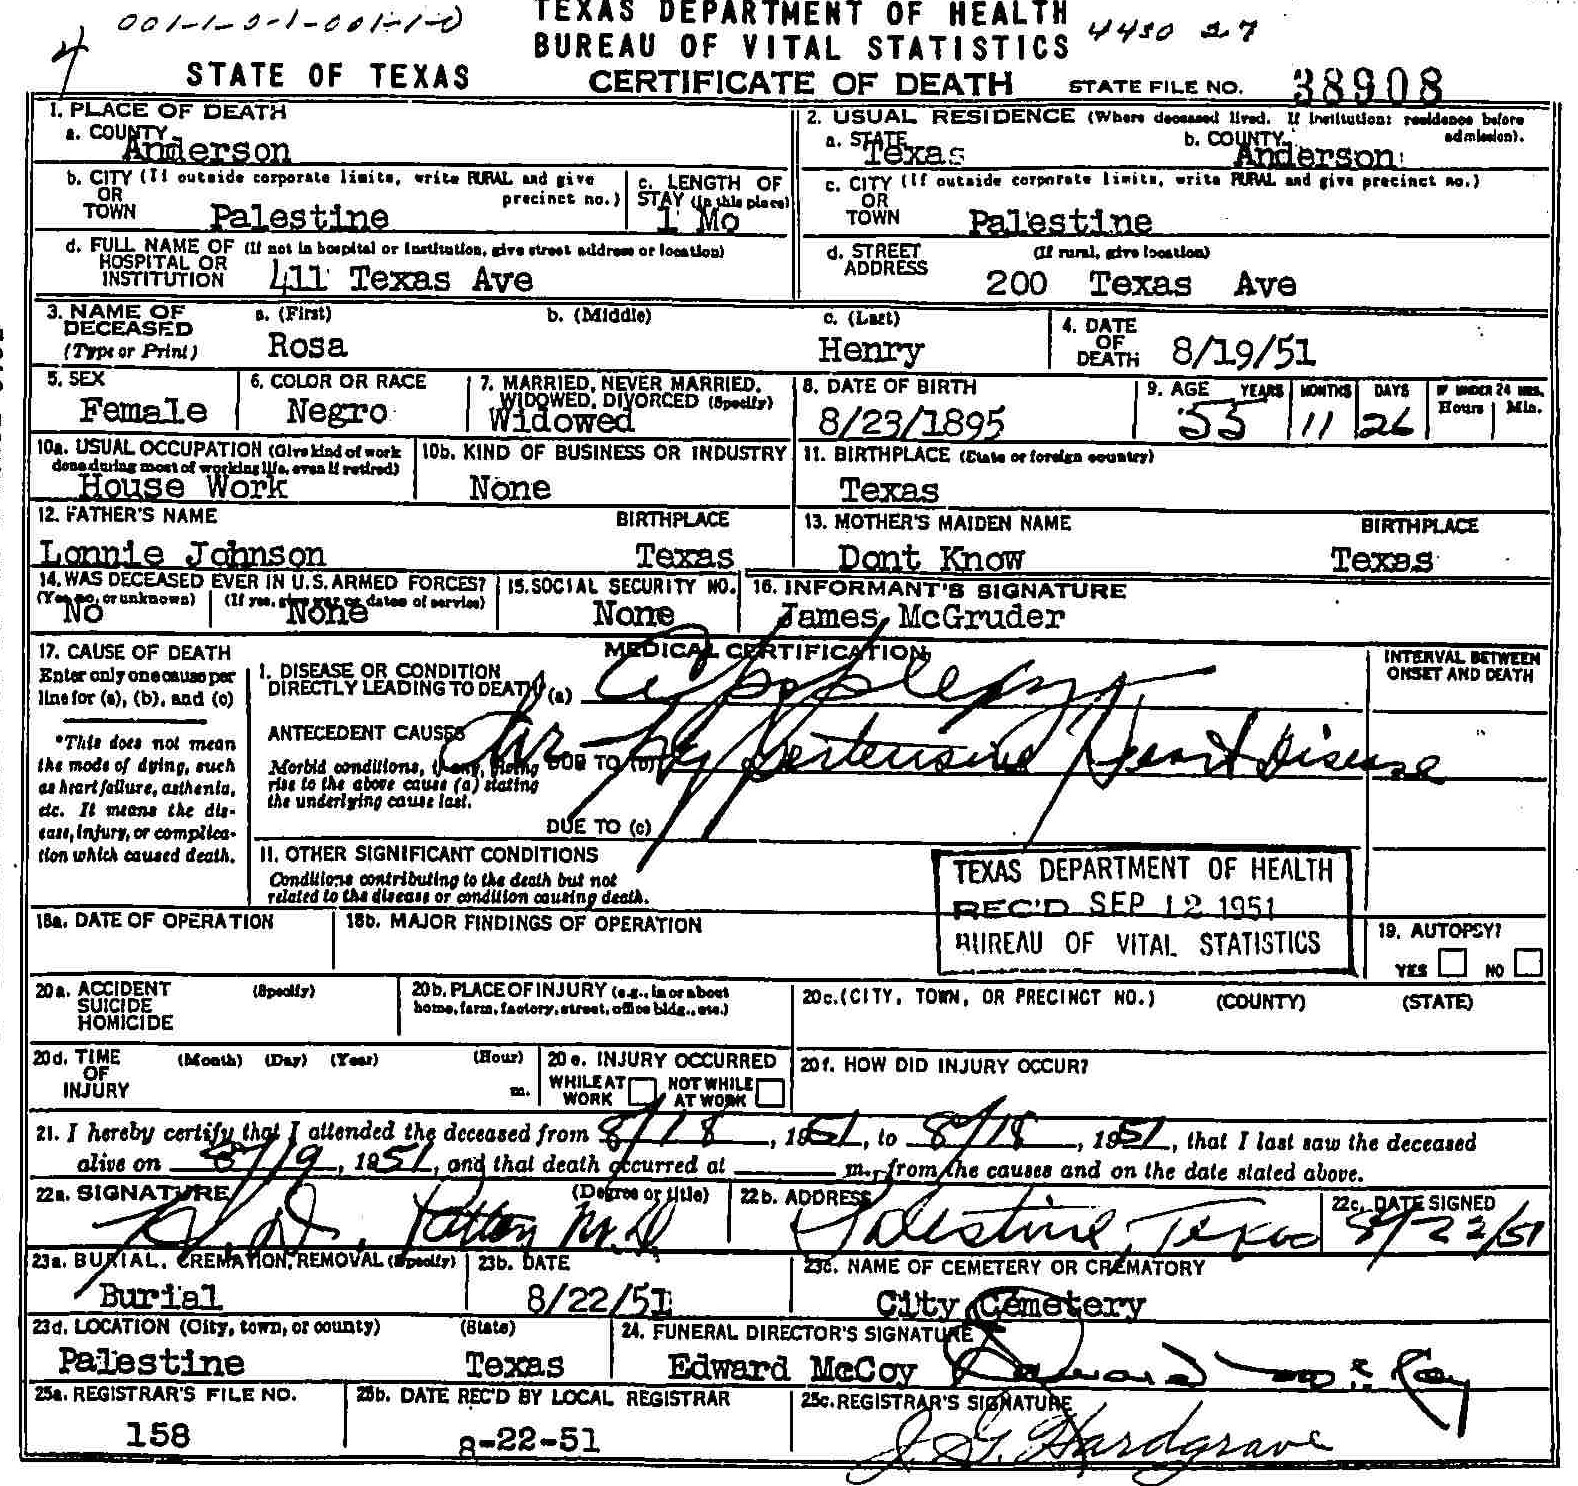 001-1-0-1-001-1-0
TEXAS DEPARTMENT OF HEALTH
4430 27
4
BUREAU OF VITAL STATISTICS
STATE OF TEXAS
CERTIFICATE OF DEATH
STATE FILE NO. 38908
1. PLACE OF DEATH
a. COUNTY
Anderson
2. USUAL RESIDENCE (Where deceased lived. If institution: residence before admission).
a. STATE
Texas
b. COUNTY
Anderson
b. CITY (If outside corporate limits, write RURAL and give precinct no.)
OR
TOWN
Palestine
c. LENGTH OF
STAY (in this place)
1 Mo
c. CITY (If outside corporate limits, write RURAL and give precinct no.)
OR
TOWN
Palestine
d. FULL NAME OF (If not in hospital or institution, give street address or location)
HOSPITAL OR
INSTITUTION
411 Texas Ave
d. STREET
ADDRESS
(If rural, give location)
200 Texas Ave
3. NAME OF
DECEASED
(Type or Print)
a. (First)
Rosa
b. (Middle)
c. (Last)
Henry
4. DATE
OF
DEATH
8/19/51
5. SEX
Female
6. COLOR OR RACE
Negro
7. MARRIED, NEVER MARRIED,
WIDOWED, DIVORCED (Specify)
Widowed
8. DATE OF BIRTH
8/23/1895
9. AGE YEARS MONTHS DAYS IF UNDER 24 HRS.
Hours Min.
55 11 26
10a. USUAL OCCUPATION (Give kind of work
done during most of working life, even if retired)
House Work
10b. KIND OF BUSINESS OR INDUSTRY
None
11. BIRTHPLACE (State or foreign country)
Texas
12. FATHER'S NAME BIRTHPLACE
Lonnie Johnson Texas
13. MOTHER'S MAIDEN NAME BIRTHPLACE
Dont Know Texas
14. WAS DECEASED EVER IN U.S. ARMED FORCES?
(Yes, no, or unknown) (If yes, give war or dates of service)
No None
15. SOCIAL SECURITY NO.
None
16. INFORMANT'S SIGNATURE
James McGruder
17. CAUSE OF DEATH
Enter only one cause per
line for (a), (b), and (c)
*This does not mean
the mode of dying, such
as heart failure, asthenia,
etc. It means the dis-
ease, injury, or complica-
tion which caused death.
MEDICAL CERTIFICATION
INTERVAL BETWEEN
ONSET AND DEATH
I. DISEASE OR CONDITION
DIRECTLY LEADING TO DEATH (a) Apoplexy
ANTECEDENT CAUSES
Morbid conditions, if any, giving
rise to the above cause (a) stating
the underlying cause last.
DUE TO (b) Hypertensive Heart Disease
DUE TO (c)
II. OTHER SIGNIFICANT CONDITIONS
Conditions contributing to the death but not
related to the disease or condition causing death.
TEXAS DEPARTMENT OF HEALTH
REC'D SEP 12 1951
BUREAU OF VITAL STATISTICS
18a. DATE OF OPERATION
18b. MAJOR FINDINGS OF OPERATION
19. AUTOPSY?
YES NO
20a. ACCIDENT (Specify)
SUICIDE
HOMICIDE
20b. PLACE OF INJURY (e.g., in or about
home, farm, factory, street, office bldg., etc.)
20c. (CITY, TOWN, OR PRECINCT NO.) (COUNTY) (STATE)
20d. TIME (Month) (Day) (Year) (Hour)
OF
INJURY m.
20e. INJURY OCCURRED
WHILE AT WORK NOT WHILE AT WORK
20f. HOW DID INJURY OCCUR?
21. I hereby certify that I attended the deceased from 8/18, 1951, to 8/18, 1951, that I last saw the deceased
alive on 8/19, 1951, and that death occurred at m., from the causes and on the date stated above.
22a. SIGNATURE (Degree or title)
Patton M.D.
22b. ADDRESS
Palestine, Texas
22c. DATE SIGNED
8/22/51
23a. BURIAL, CREMATION, REMOVAL (Specify)
Burial
23b. DATE
8/22/51
23c. NAME OF CEMETERY OR CREMATORY
City Cemetery
23d. LOCATION (City, town, or county) (State)
Palestine Texas
24. FUNERAL DIRECTOR'S SIGNATURE
Edward McCoy Edward McCoy
25a. REGISTRAR'S FILE NO.
158
25b. DATE REC'D BY LOCAL REGISTRAR
8-22-51
25c. REGISTRAR'S SIGNATURE
J. G. Hardgrave